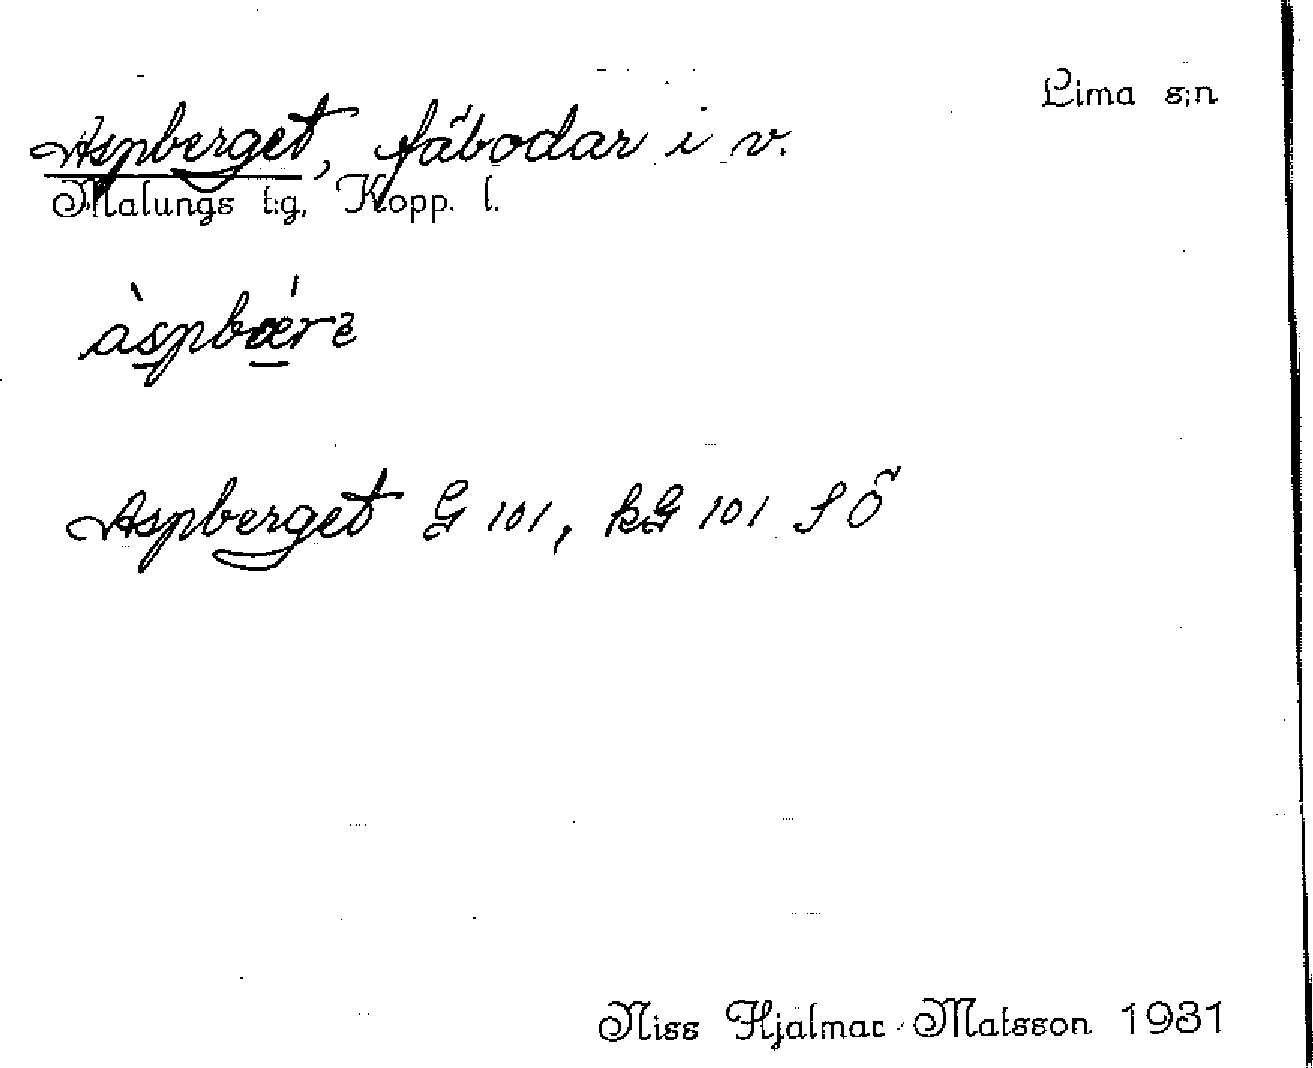 Lima s:n
Aspberget, fäbodar i v.
Malungs t:g, Kopp. l.
Aspberget G 101, kG 101 SÖ
Niss Hjalmar Matsson 1931